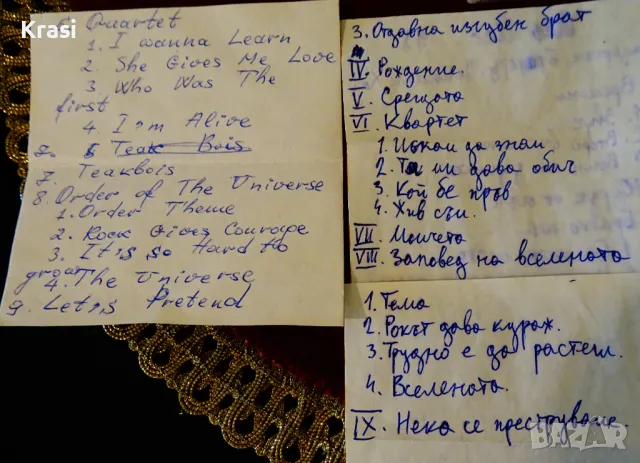 Krasi
6. Quartet
1. I wanna Learn
2. She Gives Me Love
3. Who Was The
first
4. I,m Alive
7. Teakbois
8. Order of The Universe
1. Order Theme
2. Rock Gives Courage
3. It,s so Hard to
grow
4. The Universe
9. Let,s Pretend
3. Отдавна изгубен брат
IV. Рождение.
V. Срещата
VI. Квартет
1. Искам да знам
2. Тя ми дава обич
3. Кой бе пръв
4. Жив съм.
VII. Момчета
VIII. Заповед на вселената
1. Тема
2. Рокът дава кураж.
3. Трудно е да растеш.
4. Вселената.
IX. Нека се преструваме
BAZAR